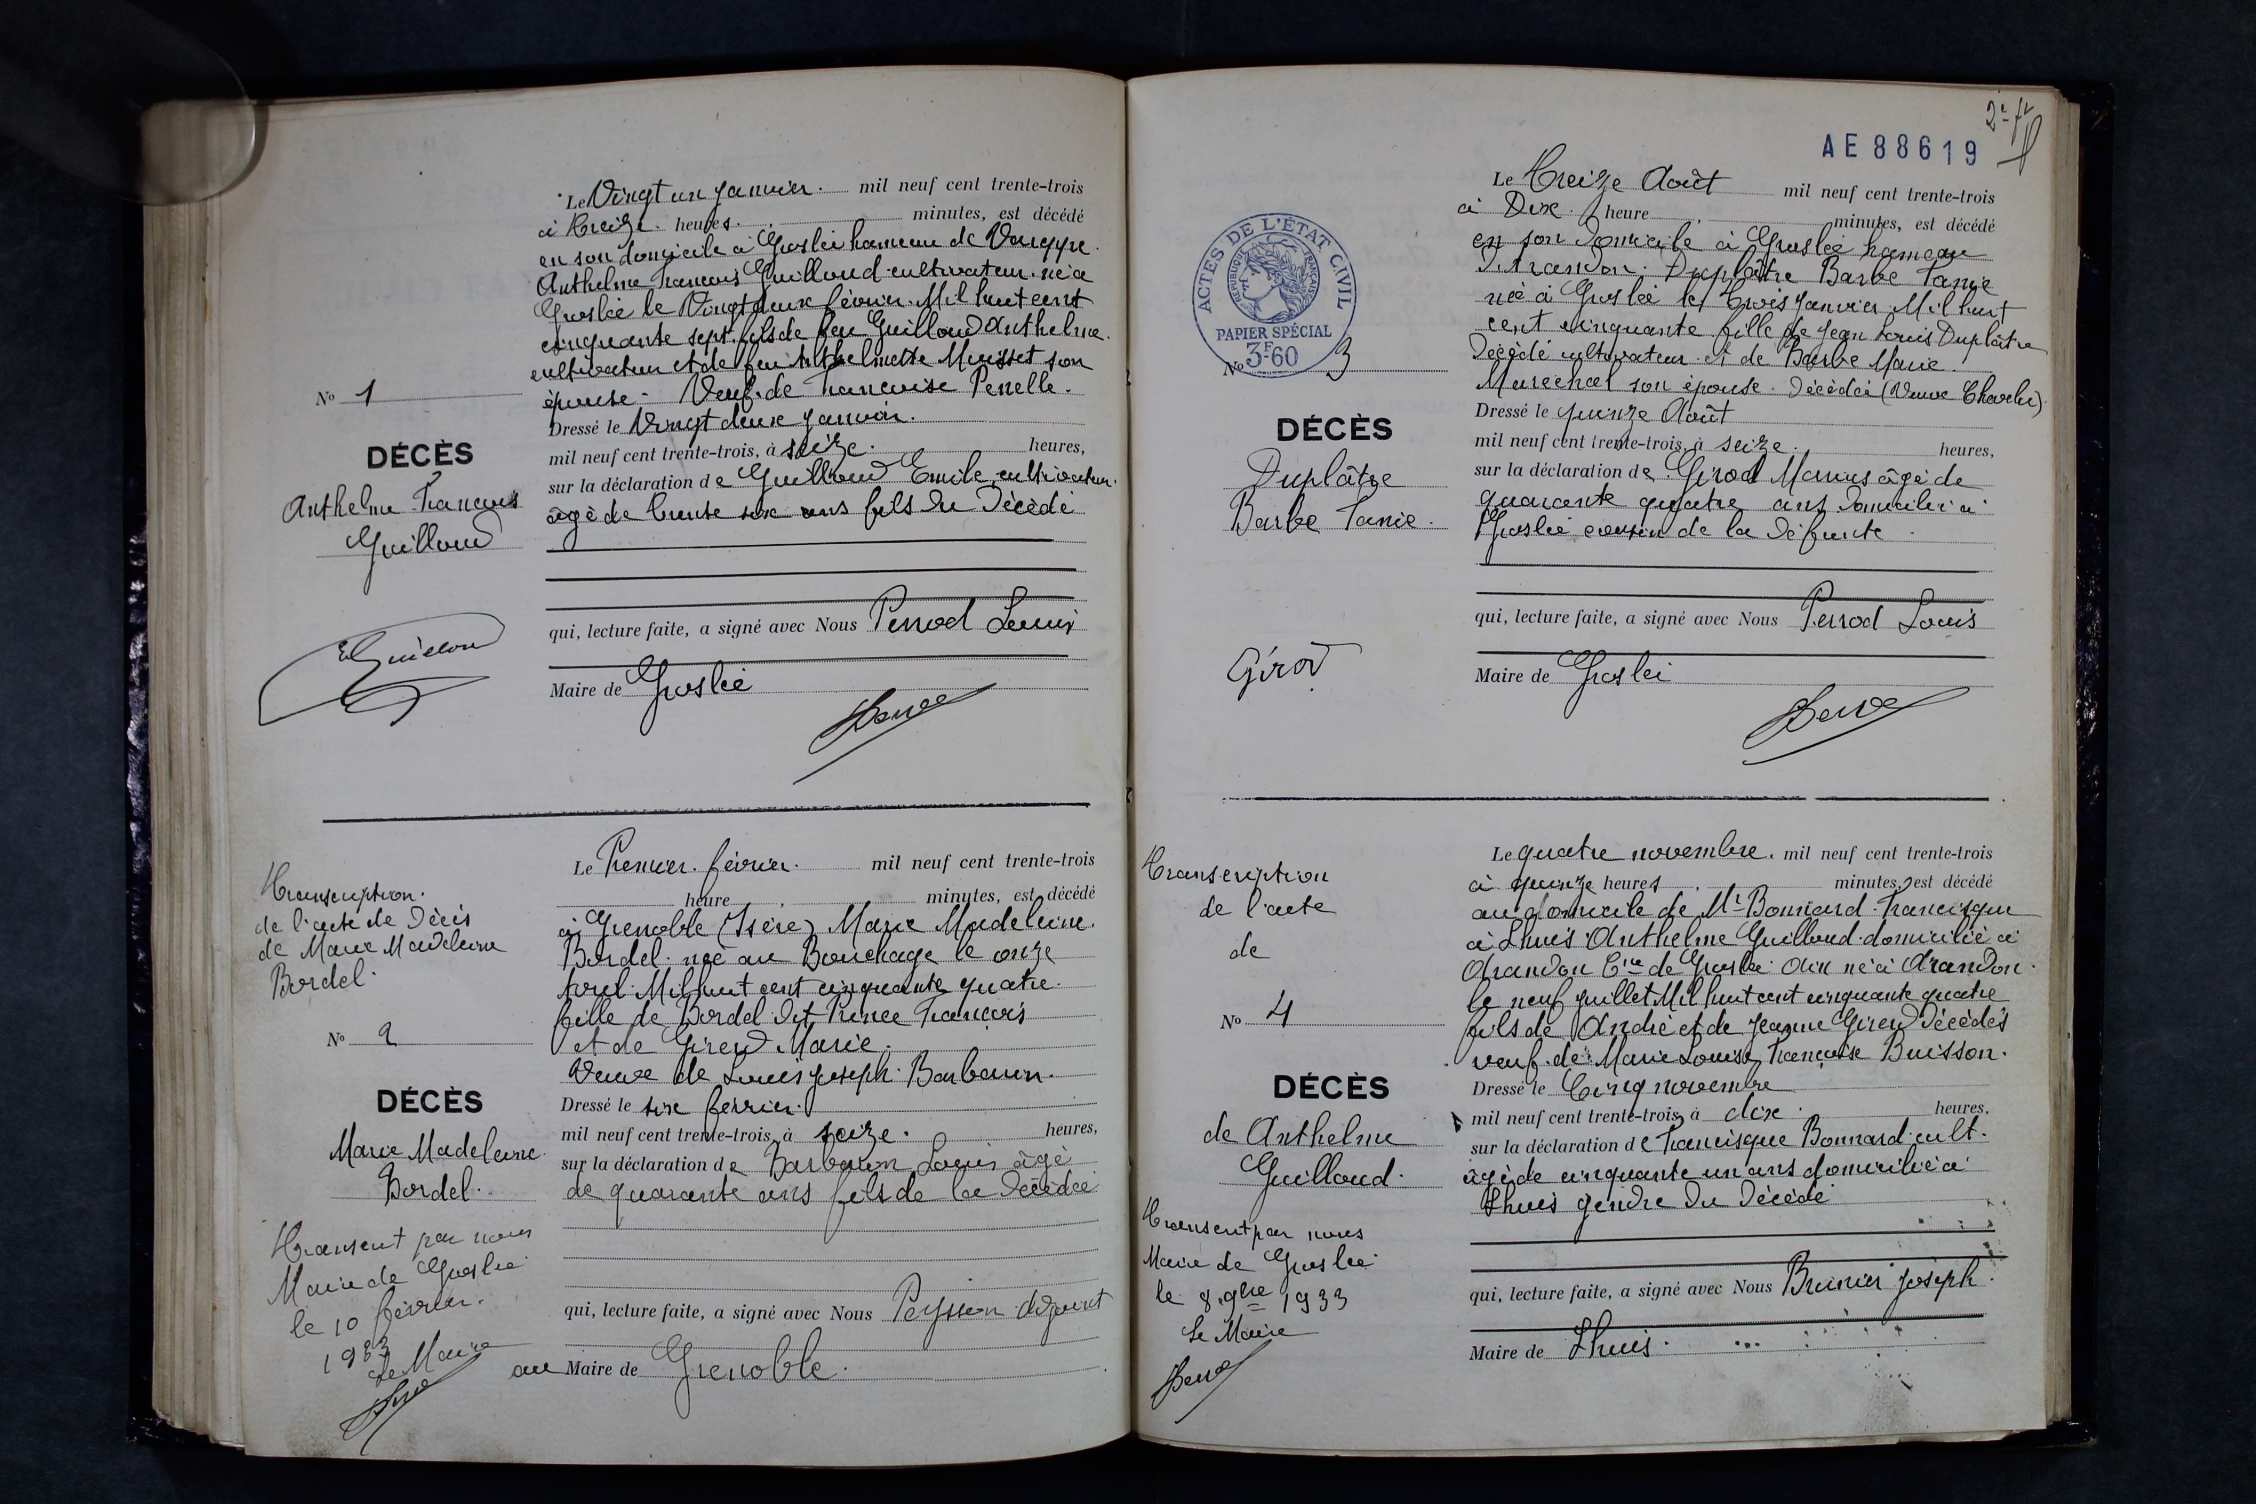 Le Vingt un janvier. mil neuf cent trente-trois
à Treize. heures. minutes, est décédé
en son domicile à Groslée hameau de
Anthelme François Guilloud cultivateur. né à
Groslée le Vingt deux février. Mil huit cent
cinquante sept. fils de feu Guilloud Anthelme.
cultivateur et de feu Anthelmette Morisset son
épouse - Veuf. de Françoise Penelle.
No 1
DÉCÈS
Anthelme François
Guilloud
Dressé le Vingt deux janvier.
mil neuf cent trente-trois, à seize. heures,
sur la déclaration de Guilloud Emile cultivateur.
âgé de trente six ans fils du Décédé
qui, lecture faite, a signé avec Nous Perrod Louis
Maire de Groslée
EGuilloud
Transcription.
de l'acte de Décès
de Marie Madeleine
Bordel.
No 2
DÉCÈS
Marie Madeleine
Bordel.
Transcrit par nous
Maire de Groslée
le 10 février.
1933
Le Maire
Le Premier. février. mil neuf cent trente-trois
heure minutes, est décédé
à Grenoble (Isère) Marie Madeleine.
Bordel. née au Bouchage le onze
Avril. Mil huit cent cinquante quatre.
fille de Bordel dit Prince François
et de Gireud Marie.
Veuve de Louis Joseph. Barbarin.
Dressé le six février.
mil neuf cent trente-trois, à seize. heures,
sur la déclaration de Barbarin Louis âgé
de quarante ans fils de la Décédée
qui, lecture faite, a signé avec Nous Peysson adjoint
au Maire de Grenoble.
2e ft
AE 88619
ACTES DE L'ÉTAT CIVIL
RÉPUBLIQUE FRANÇAISE
PAPIER SPÉCIAL
3F60
No 3
DÉCÈS
Duplâtre
Barbe Tanie.
Girod
Le Treize Août mil neuf cent trente-trois
à Dix. heure minutes, est décédé
en son domicile à Groslée hameau
D'Arandon. Duplâtre Barbe Tanie
née à Groslée le trois janvier Mil huit
cent cinquante fille de Jean Louis Duplâtre
Décédé cultivateur. et de Barbe Marie.
Marechal son épouse. Décédée (Veuve Charlin).
Dressé le quinze Août
mil neuf cent trente-trois, à seize. heures,
sur la déclaration de Girod Marius âgé de
quarante quatre ans domicilié à
Groslée cousin de la défunte.
qui, lecture faite, a signé avec Nous Perrod Louis
Maire de Groslée
Transcription
de l'acte
de
No 4
DÉCÈS
de Anthelme
Guilloud.
Transcrit par nous
Maire de Groslée
le 8. 9bre 1933
Le Maire
Le quatre novembre. mil neuf cent trente-trois
à quinze heures minutes, est décédé
au domicile de Mr Bonnard. Francisque
à Lhuis Anthelme Guilloud. domicilié à
Arandon Cne de Groslée. Ain né à Arandon.
le neuf juillet Mil huit cent cinquante quatre
fils de André et de Jeanne Gireud décédés
veuf. de Marie Louise Françoise Buisson.
Dressé le Cinq novembre
mil neuf cent trente-trois, à dix. heures,
sur la déclaration de Francisque Bonnard. cult.
âgé de cinquante un ans domicilié à
Lhuis gendre du Décédé
qui, lecture faite, a signé avec Nous Brunier Joseph.
Maire de Lhuis.